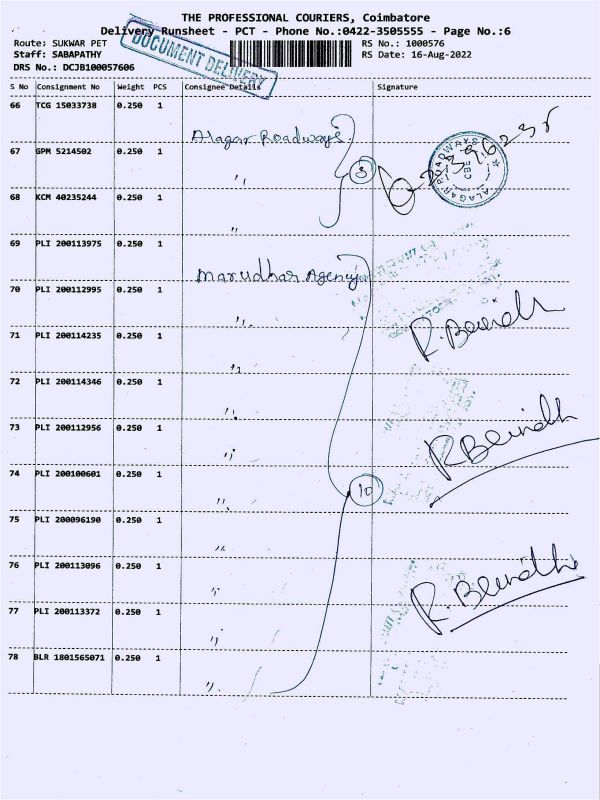 THE PROFESSIONAL COURIERS, Coimbatore
Delivery Runsheet - PCT - Phone No.:0422-3505555 - Page No.:6
Route: SUKWAR PET
RS No.: 1000576
Staff: SABAPATHY
RS Date: 16-Aug-2022
DRS No.: DCJB100057606
DOCUMENT DELIVERY
S No Consignment No Weight PCS Consignee Details Signature
66 TCG 15033738 0.250 1
Alagar Roadways
67 GPM 5214502 0.250 1
,,
3
ALAGAR ROADWAYS
CBE
68 KCM 40235244 0.250 1
,,
69 PLI 200113975 0.250 1
Marudhar Agency
70 PLI 200112995 0.250 1
,,
71 PLI 200114235 0.250 1
,,
72 PLI 200114346 0.250 1
,,
73 PLI 200112956 0.250 1
,,
74 PLI 200100601 0.250 1
10
,,
75 PLI 200096190 0.250 1
,,
76 PLI 200113096 0.250 1
,,
77 PLI 200113372 0.250 1
,,
78 BLR 1801565071 0.250 1
,,